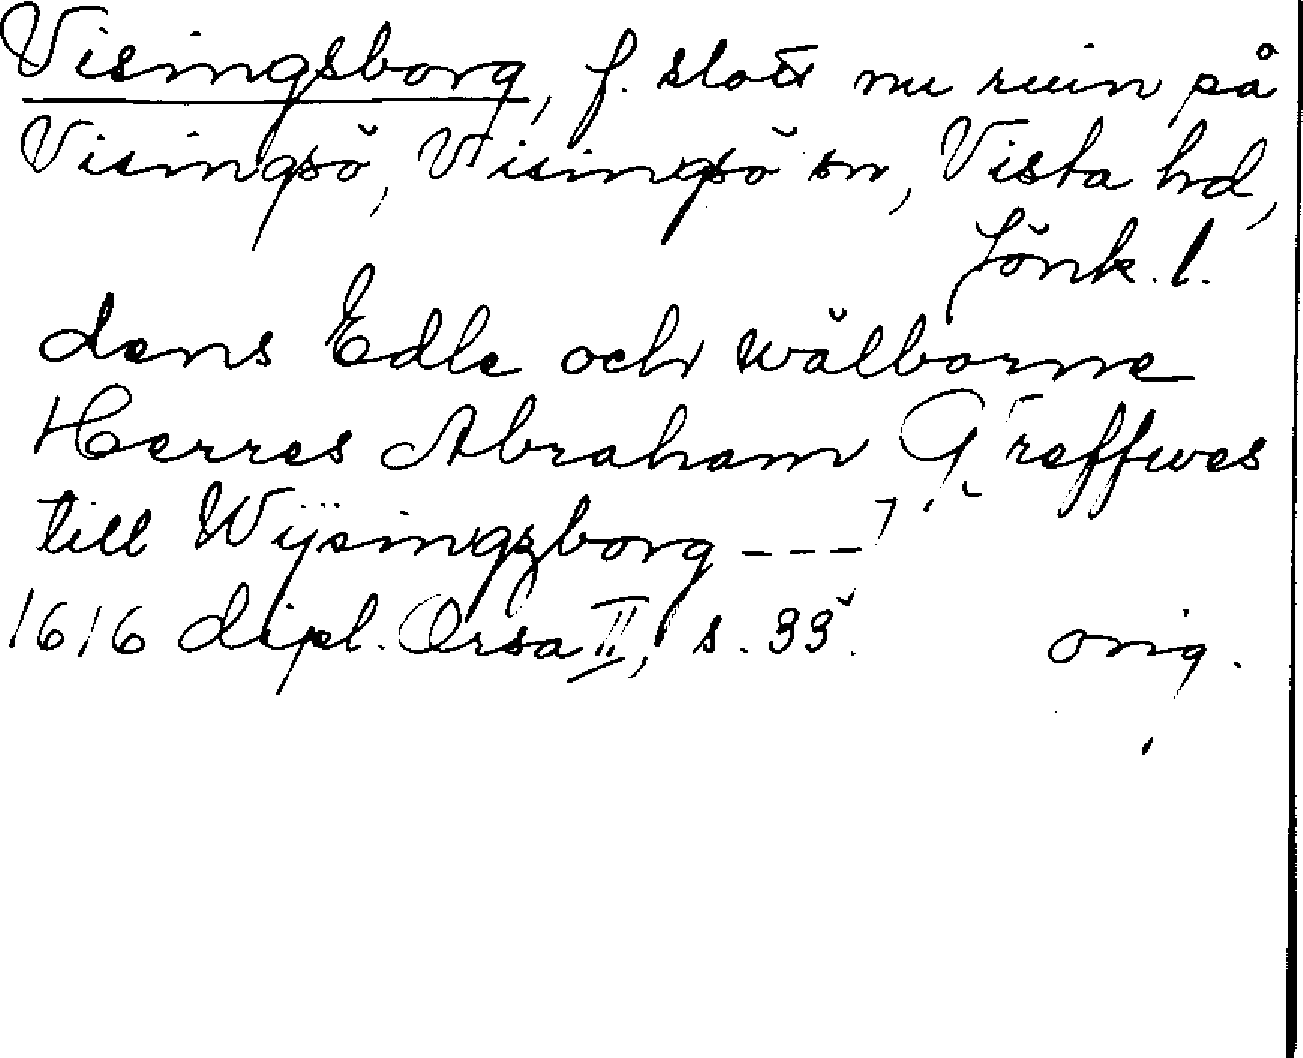 Visingsborg, f. slott nu ruin på
Visingsö, Visingsö sn, Vista hd,
Jönk. l.
dens Edle och wälborne
Herres Abraham Greffwes
till Wÿsingzborg ---
1616 dipl. Orsa II, s. 33. orig.